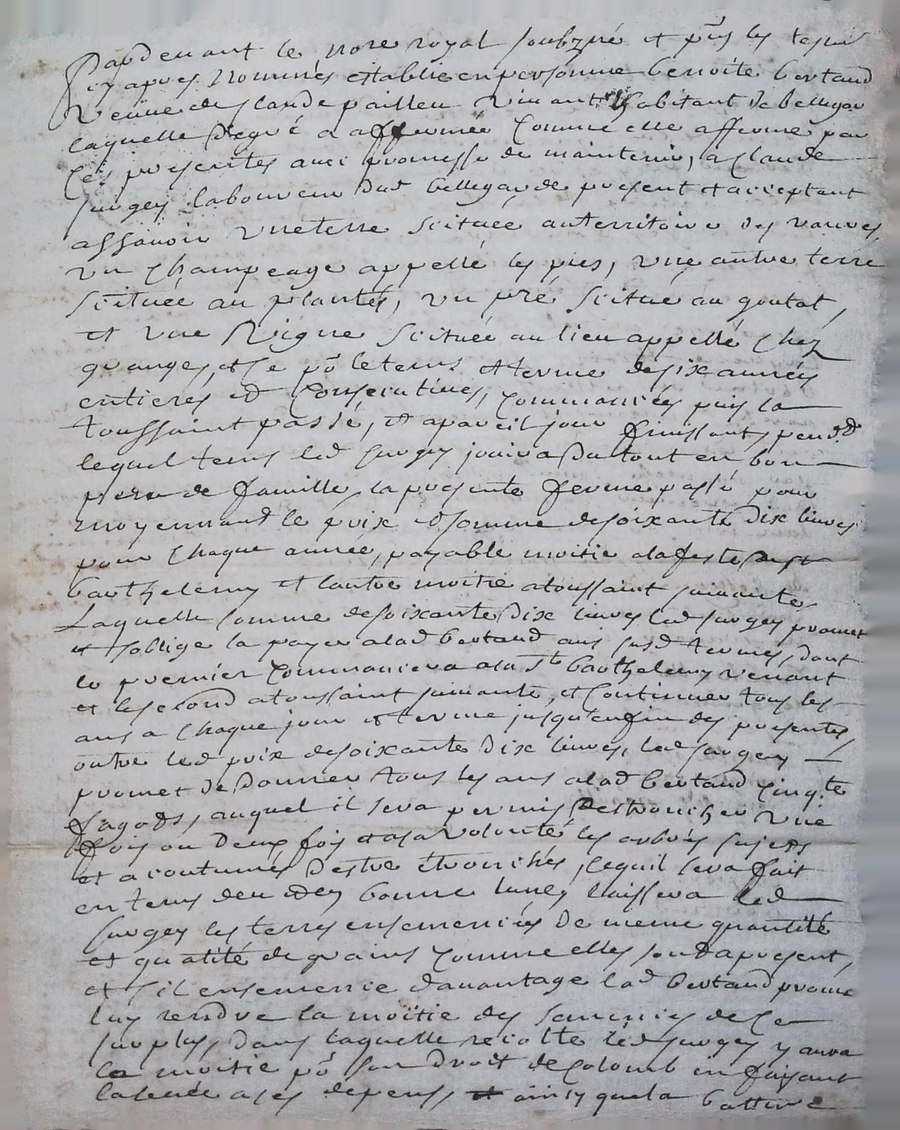 Pardevant le nore royal soubzné et pnt les tesm
cy apres nommés establie en personne benoite bertaud
veuve de claude pailleu vivant habitant de bellegar
laquelle de gré a affermée comme elle afferme par
ces presentes avec promesse de maintenir, a claude
surgey laboureur dud bellegarde present et acceptant
assavoir une terre scituée au territoire des vauves,
un champeage appellé les pies, une autre terre
scituée au plantés, un pré scitué au goutat,
et une vigne scituée au lieu appellé chez
quanges, et ce pr le tems et terme de six années
entieres et consecutives, commancées puis la
toussaint passé, et a pareil jour finissants, pendt
lequel tems led surgey jouira du tout en bon
pere de famille, la presente ferme passé pour
moyennand le prix et somme de soixante dix livres
pour chaque année, payable moitié a la feste de st
barthelemy et lautre moitié a toussaint suivante
Laquelle somme de soixante dix livres led surgey promet
et soblige la payer a lad bertaud aux susd termes, dont
le premier commancera a la St barthelemy venant
et le second a toussaint suivante, et continuer tous les
ans a chaque jour et terme jusqu'en fin des presentes
outre led prix de soixante dix livres, led surgey
promet de donner tous les ans a lad bertaud cinqte
fagots, auquel il sera permis d'estroncher une
fois ou deux foys et a sa volonté les arbres sujets
et acoutumés d'estre étronchés, lequil sera fait
en tems deu et de bonne lune, laissera led
surgey les terres ensemencées de meme quantité
et qualité de grains comme elles sont a present,
et s'il ensemence davantage lad bertaud promet
luy rendre la moitié des semences de ce
surplus, dans laquelle recolte led surgey y aura
la moitié pr son droit de colomb en faisant
la levée a ses depens, et ainsy que la batture